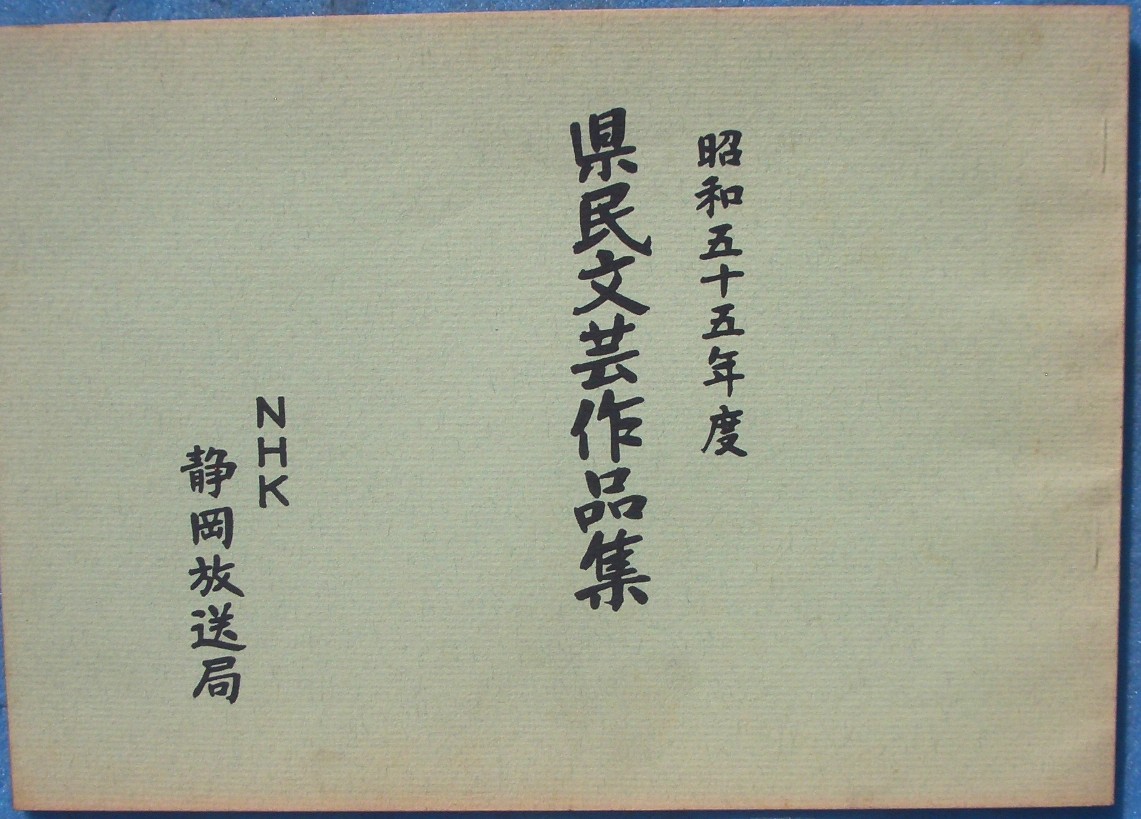 昭和五十五年度
県民文芸作品集
NHK
静岡放送局